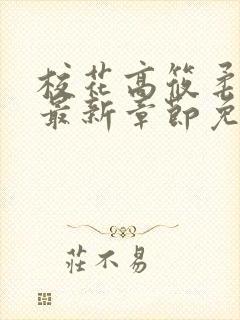 校花高筱柔
最新章節免
莊不易